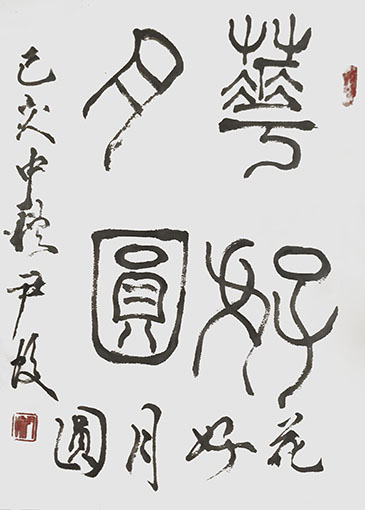 華好
月圓
花好月圓
己亥中秋 尹